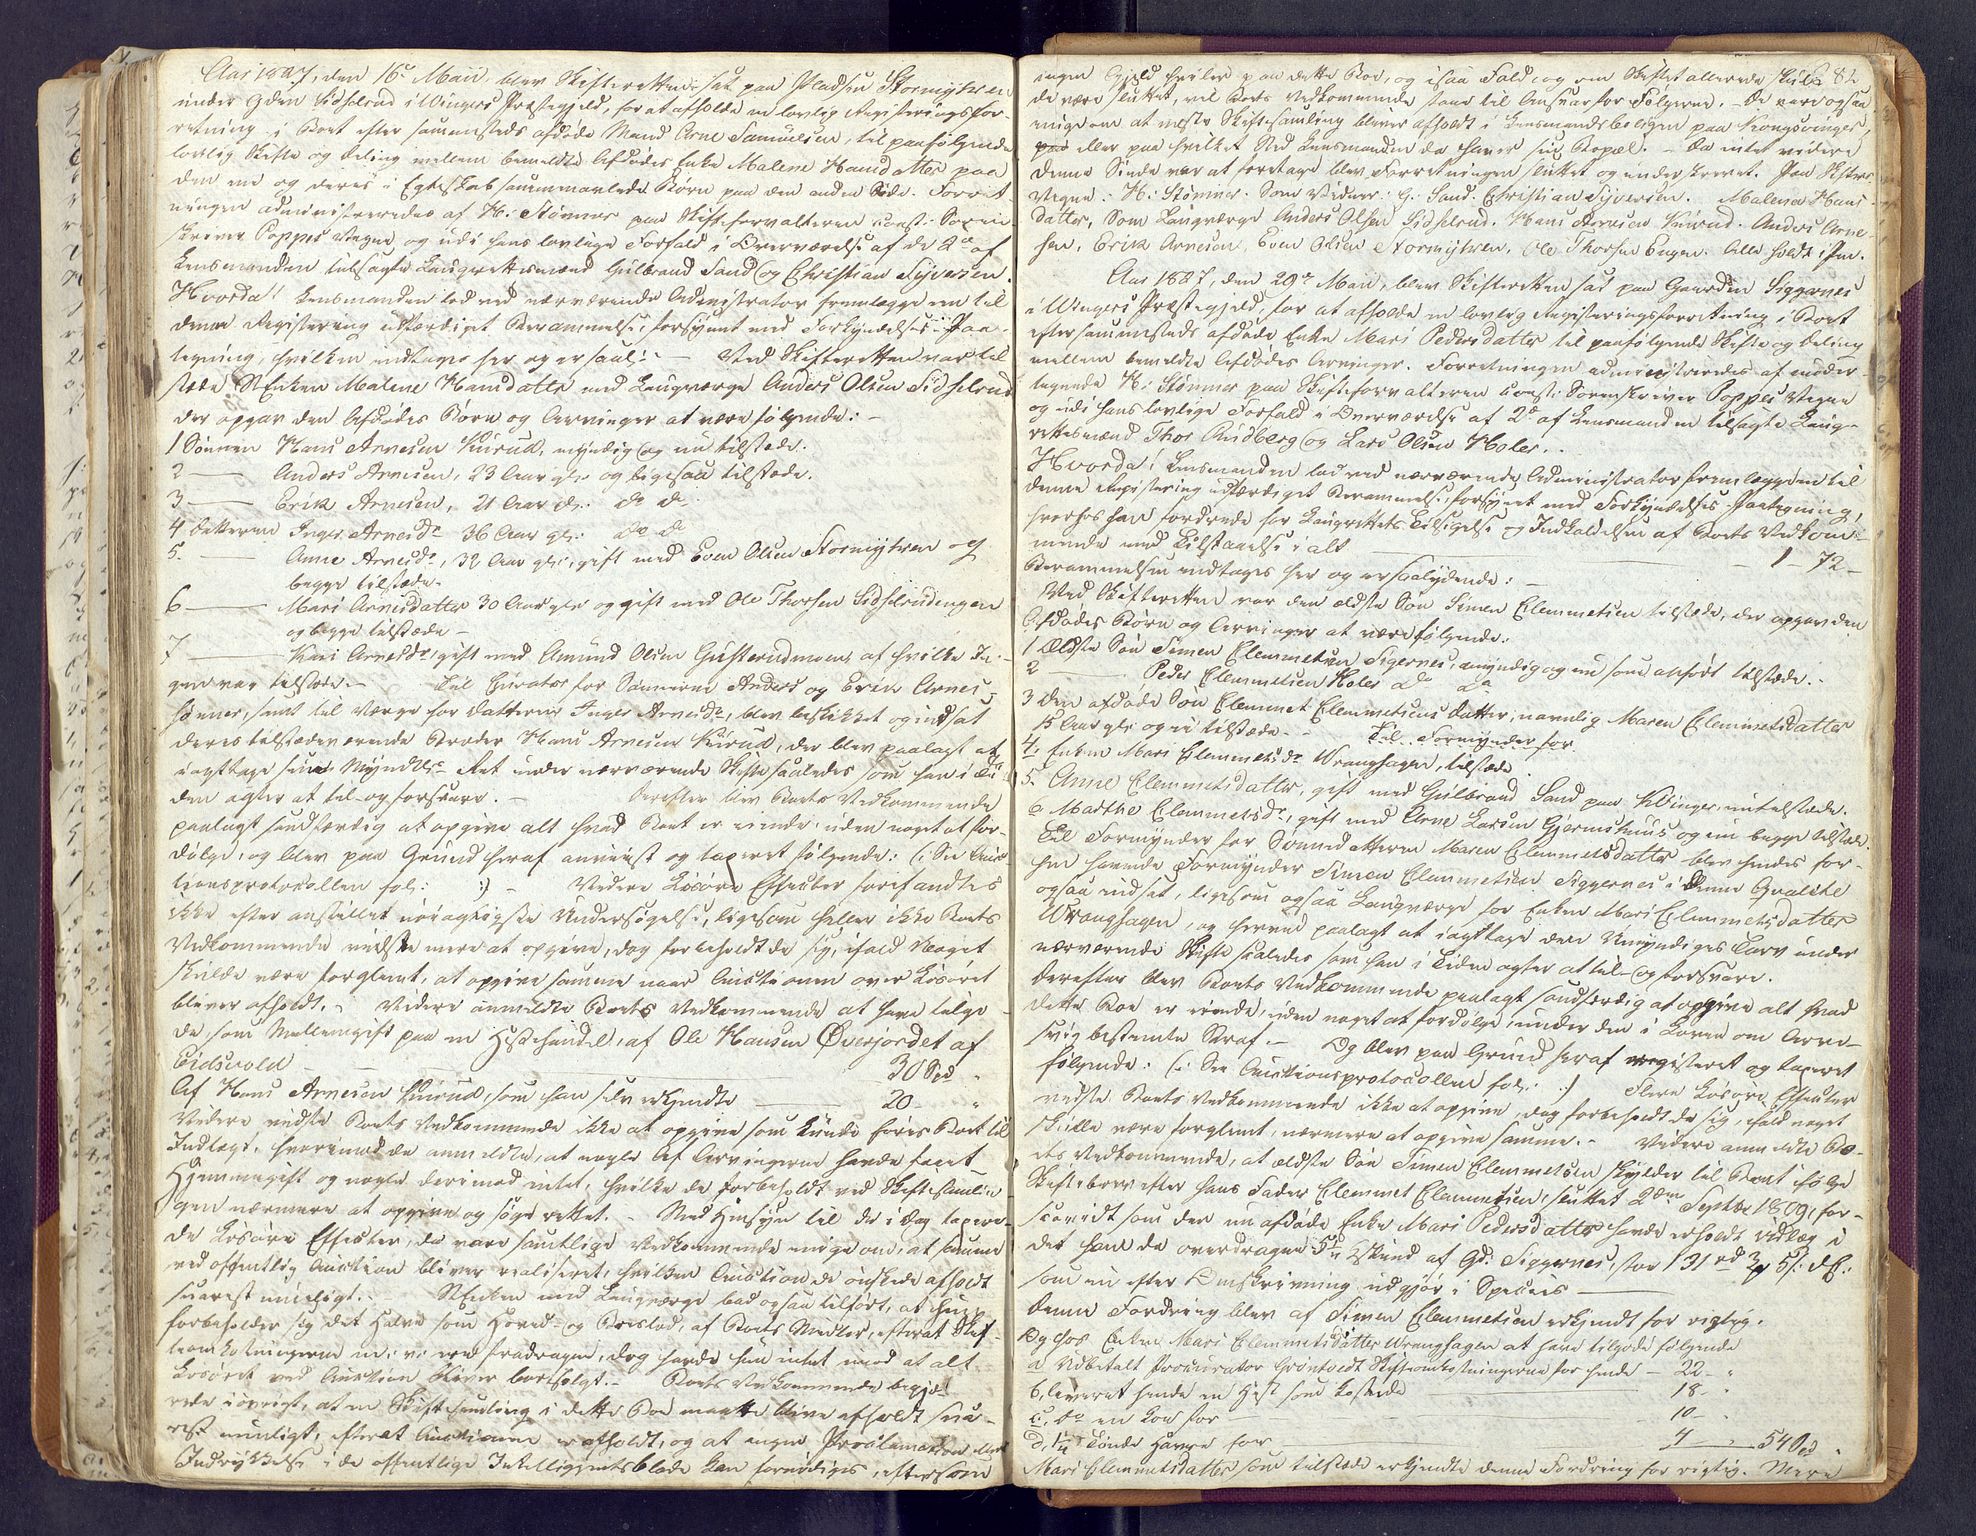 Aar 1827, den 16de Maii, blev Skifteretten sat paa Pladsen Stormyhren
under Gden Sidselrud i Wingers Præstegjeld, for at afholde en lovlig Registeringsfor-
retning i Boet efter sammesteds afdøde Mand Arne Samuelsen, til paafølgende
lovlig Skifte og Deling mellem bemeldte Afdødes Enke Malene Hansdatter paa
den ene og deres i Egteskab sammenavlede Børn paa den anden Side. Forret-
ningen administreredes af H. Stømner paa Skifteforvalteren const. Soren-
skriver Poppes Vegne og udi hans lovlige Forfald i Overværelse af de 2de af
Lensmanden tilsagte Laugrettesmænd Gulbrand Sand og Christian Syversen.
Hvorda! Lensmanden lod ved nærværende Administrator fremlægge en til
denne Registering udfærdiget Berammelse, forsynet med Forkyndelses-Paa-
tegning, hvilken indtages her og er saal: – Ved Skifteretten var til-
stæde Enken Malene Hansdatter med Laugværge Anders Olsen Sidselrud
der opgav den Afdødes Børn og Arvinger at være følgende: –
1 Sønnen Hans Arnesen Kurud, myndig og nu tilstæde.
2 — Anders Arnesen, 23 Aar gl. og ligesaa tilstæde.
3 — Erik Arnesen, 21 Aar gl: do do
4 Datteren Inger Arnesdr 36 Aar gl: do do
5 — Anne Arnesdr, 32 Aar gl:, gift med Even Olsen Stormyhren og
begge tilstæde.
6 — Mari Arnesdatter 30 Aar gl: og gift med Ole Thorsen Sidselrudengen
og begge tilstæde –
7 — Kari Arnesdr, gift med Amund Olsen Gusterudmoen, af hvilke In-
gen var tilstæde. – Til Curator for Sønnerne Anders og Erik Arnes-
sønner, samt til Værge for Datteren Inger Arnesdr, blev beskikket og indsat
deres tilstædeværende Broder Hans Arnesen Kurud, der blev paalagt at
iagttage sine Myndtl: Ret under nærværende Skifte saaledes som han i Ti-
den agter at til- og forsvare. – Derefter blev Boets Vedkommende
paalagt sandfærdig at opgive alt hvad Boet er eiende, uden noget at for-
dølge, og blev paa Grund heraf anviist og taxeret følgende: (: See Auc-
tionsprotocollen fol: :) – Videre Løsøre Effecter forefandtes
ikke efter anstillet nøiagtigste Undersøgelse, ligesom heller ikke Boets
Vedkommende vidste mere at opgive, dog forbeholdt de sig, ifald Noget
skulde være forglemt, at opgive samme naar Auctionen over Løsøret
bliver afholdt. – Videre anmeldte Boets Vedkommende at have tilgo-
de, som Mellemgift paa en Hestehandel, af Ole Hansen Øverjordet af
Eidsvold — 30 Spd "
Af Hans Arnesen Kurud, som han selv erkjendte — 20 – "
Videre vidste Boets Vedkommende ikke at opgive som kunde føres Boet til
Indtægt, hvorimod de anmeldte, at nogle af Arvingerne havde faaet
Hjemmegift og nogle derimod intet, hvilke de forbeholdt ved Skiftesamlin-
gen nærmere at opgive og søge rettet. – Med Hensyn til de i Dag taxere-
de Løsøre Effecter, da vare samtlige Vedkommende enige om, at samme
ved offentlig Auction bliver realiseret, hvilken Auction de ønskede afholdt
snarest mueligt. – Enken med Laugværge bad ogsaa tilført, at hun
forbeholder sig det Halve som Hoved- og Broslod, af Boets Midler, efterat Skif-
teomkostningerne m: v: ere fradragne, dog havde hun intet imod at alt
Løsøret ved Auction bliver bortsolgt. – Boets Vedkommende begjæ-
rede iøvrigt, at en Skiftesamling i dette Boe maatte blive afholdt sna-
rest mueligt, efterat Auctionen er afholdt, og at ingen Proclamation eller
Indrykkelse i de offentlige Intelligentsblade kan fornødiges, eftersom
82
ingen Gjeld hviler paa dette Boe, og isaa Fald og om Skiftet allerede skulde
de være sluttet, vil Boets Vedkommende staae til Ansvar for Følgerne. – De vare ogsaa
enige om at næste Skiftesamling bliver afholdt i Lensmandsboeligen paa Kongsvinger,
eller paa hvilket Sted Lensmanden da haver sin Bopæl. – Da intet videre
denne Sinde var at foretage blev Forretningen sluttet og underskrevet. Paa Skifter.
Vegne: H. Stømner. Som Vidner: G. Sand. Christian Syversen. Malena Hans-
datter, Som Laugværge Anders Olsen Sidselrud. Hans Arnesen Kurud. Anders Arne-
sen, Erik Arnesen, Even Olsen Stormyhren, Ole Thorsen Engen. Alle holdt i Pen.
Aar 1827, den 29de Maii, blev Skifteretten sat paa Gaarden Siggernes
i Wingers Præstegjeld, for at afholde en lovlig Registeringsforretning i Boet
efter sammesteds afdøde Enke Mari Pedersdatter til paafølgende Skifte og Deling
mellem bemeldte Afdødes Arvinger. Forretningen administreredes af under-
tegnede H. Stømner paa Skifteforvalteren const. Sorenskriver Poppes Vegne
og udi hans lovlige Forfald i Overværelse af 2de af Lensmanden tilsagte Laug-
rettesmænd Thor Rudberg og Lars Olsen Holer.
Hvorda! Lensmanden lod ved nærværende Administrator fremlægge en til
denne Registering udfærdiget Berammelse, forsynet med Forkyndelses-Paategning,
hvorhos han fordrede for Laugrettets Tilsigelse og Indkaldelsen af Boets Vedkom-
mende med Tilstævelse i alt — 1 – 72 –
Berammelsen indtages her og er saalydende: –
Ved Skifteretten var den ældste Søn Simen Clemmetsen tilstæde, der opgav den
Afdødes Børn og Arvinger at være følgende:
1 Ældste Søn Simen Clemmetsen Sigernes, myndig og nu som anført tilstæde. –
2 — Peder Clemmetsen Holer do do
3 Den afdøde Søn Clemmet Clemmetsens Datter, navnlig Maren Clemmetsdatter
15 Aar gl: og ei tilstæde. – Til Formynder for
4, Enken Mari Clemmetsdr Wranghagen, tilstæde
5. Anne Clemmetsdatter, gift med Gulbrand Sand paa Vinger, ei tilstæde.
6 Marthe Clemmetsdr, gift med Arne Larsen Gjermshuus og ei begge tilstæde.
Til Formynder for Sønnedatteren Maren Clemmetsdatter blev hendes for-
hen havende Formynder Simen Clemmetsen Siggernes i denne Qvalité
ogsaa indsat, ligesom ogsaa Laugværge for Enken Mari Clemmetsdatter
Wranghagen, og herved paalagt at iagttage den Umyndiges Tarv under
nærværende Skifte saaledes som han i Tiden agter at til- og forsvare.
Derefter blev Boets Vedkommende paalagt sandfærdig at opgive alt hvad
dette Boe er eiende, uden noget at fordølge, under den i Loven om Arve-
svig bestemte Straf. – Og blev paa Grund heraf registeret og taxeret
følgende: (: See Auctionsprotocollen fol: :) Flere Løsøre Effecter
vidste Boets Vedkommende ikke at opgive, dog forbeholdt de sig, ifald noget
skulde være forglemt, nærmere at opgive samme. – Videre anmeldte Bo-
ets Vedkommende, at ældste Søn Simen Clemmetsen skylder til Boet ifølge
Skiftebrev efter hans Fader Clemmet Clemmetsen, sluttet 2den Septbr 1809, for-
saavidt som den nu afdøde Enke Mari Pedersdatter havde erholdt Udlæg i
det ham da overdragne Skind af Gd: Siggernes, stor 131 rd 3 ß d.C:
som nu efter Omskrivning udgjør i Species —
Denne Fordring blev af Simen Clemmetsen erkjendt for rigtig.
Og hos Enken Mari Clemmetsdatter Wranghagen at have tilgode følgende
a Udbetalt Procurator Grøntvedt Skifteomkostningerne for hende – 22 – "
b, leveret hende en Hest som kostede — 18 – "
c, do en Koe for — 10 –
d, 1 1/4 Tønde Havre for — 4 — 54 Spd "
Mari Clemmetsdatter som tilstæde erkjendte denne Fordring for rigtig. Mere